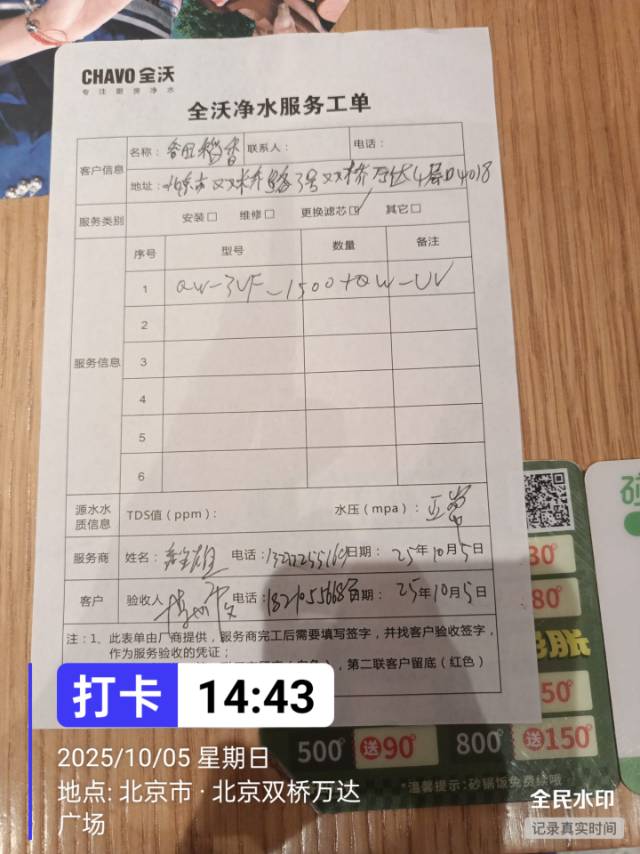 CHAVO 全沃
专注厨房净水
全沃净水服务工单
客户信息 名称： 联系人： 电话：
地址：北京市双桥路3号双桥万达4层4018
服务类别 安装□ 维修□ 更换滤芯☑ 其它□
服务信息 序号 型号 数量 备注
1 QW-3UF-1500+QW-UV
2
3
4
5
6
源水水质信息 TDS值（ppm）： 水压（mpa）：正常
服务商 姓名： 电话： 日期：25年10月5日
客户 验收人 电话： 日期：25年10月5日
注：1、此表单由厂商提供，服务商完工后需要填写签字，并找客户验收签字，
作为服务验收的凭证；
第二联客户留底（红色）
打卡 14:43
2025/10/05 星期日
地点: 北京市·北京双桥万达
广场
80°
50°
500° 送90° 800° 送150°
*温馨提示:砂锅饭免费续哦
全民水印
记录真实时间